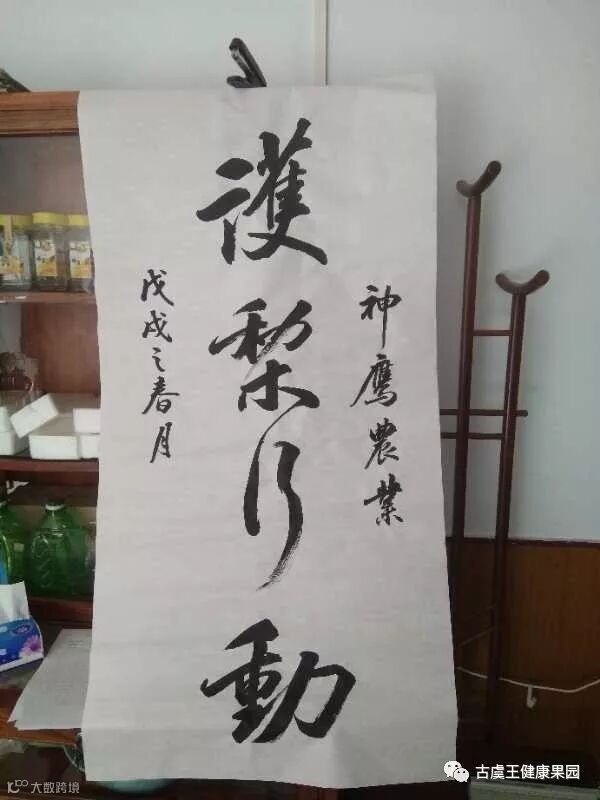 神鹰農業
護梨行動
戊戌之春月
古虞王健康果园
大数跨境